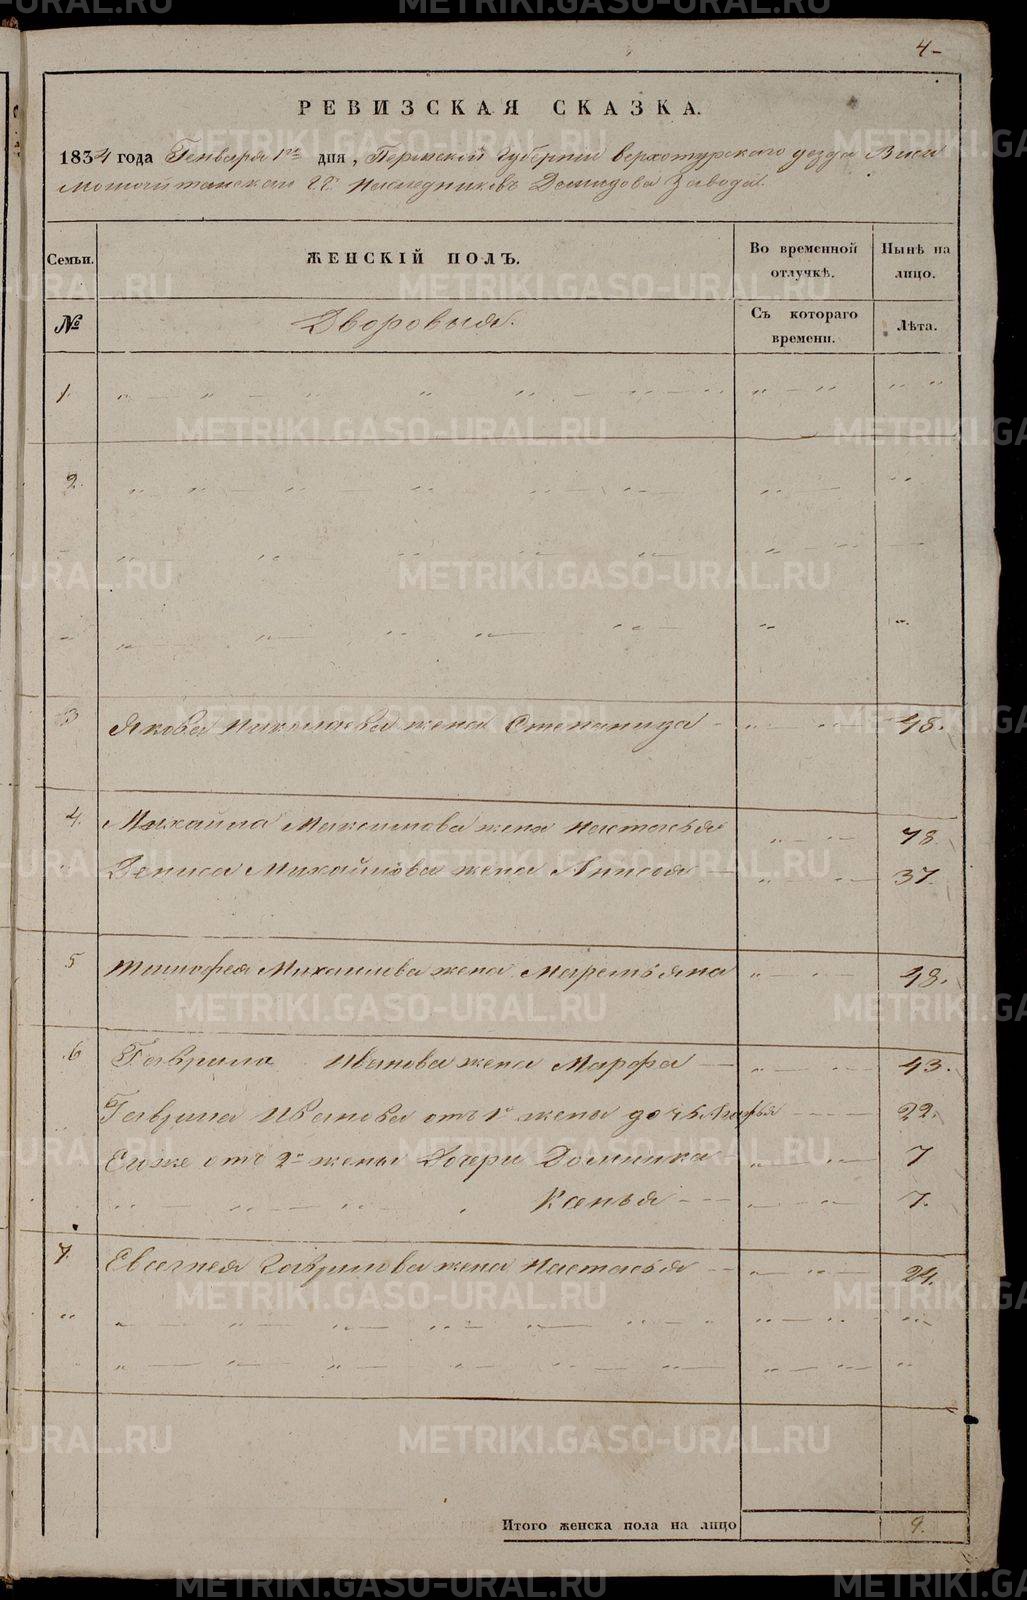 4
РЕВИЗСКАЯ СКАЗКА.
1834 года Генваря 1го дня, Пермской Губернии верхотурскаго уезда Виси
мошайтанскаи ГГ. Наследниковъ Демидова Завода.
Семьи.
ЖЕНСКІЙ ПОЛЪ.
Во временной отлучкѣ.
Нынѣ на лицо.
№
Дворовыя.
Съ котораго времени.
Лѣта.
1.
2.
3 Якова Николаева жена Степанида 48.
4. Михайла Максимова жена Настасья 78.
Дениса Михайлова жена Анисья 37.
5 Тимофея Михайлова жена Маремьяна 48.
6 Гаврила Иванова жена Марфа 43.
Гаврила Иванова отъ 1й жены дочь Агафья 22.
Егоже отъ 2й жены Дочери Домника 7
Ксенья 7.
7. Евгенея Гаврилова жена Настасья 24.
Итого женска пола на лицо 9.
METRIKI.GASO-URAL.RU